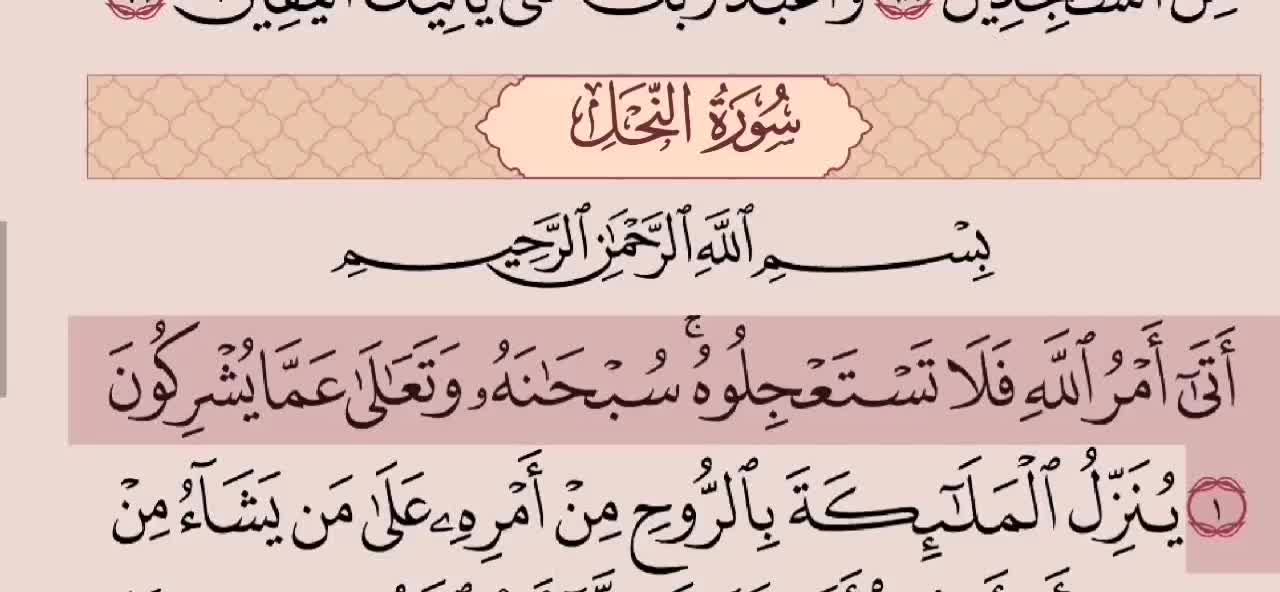 سُورَةُ النَّحۡلِ
بِسۡمِ ٱللَّهِ ٱلرَّحۡمَٰنِ ٱلرَّحِيمِ
أَتَىٰٓ أَمۡرُ ٱللَّهِ فَلَا تَسۡتَعۡجِلُوهُۚ سُبۡحَٰنَهُۥ وَتَعَٰلَىٰ عَمَّا يُشۡرِكُونَ
١ يُنَزِّلُ ٱلۡمَلَٰٓئِكَةَ بِٱلرُّوحِ مِنۡ أَمۡرِهِۦ عَلَىٰ مَن يَشَآءُ مِنۡ